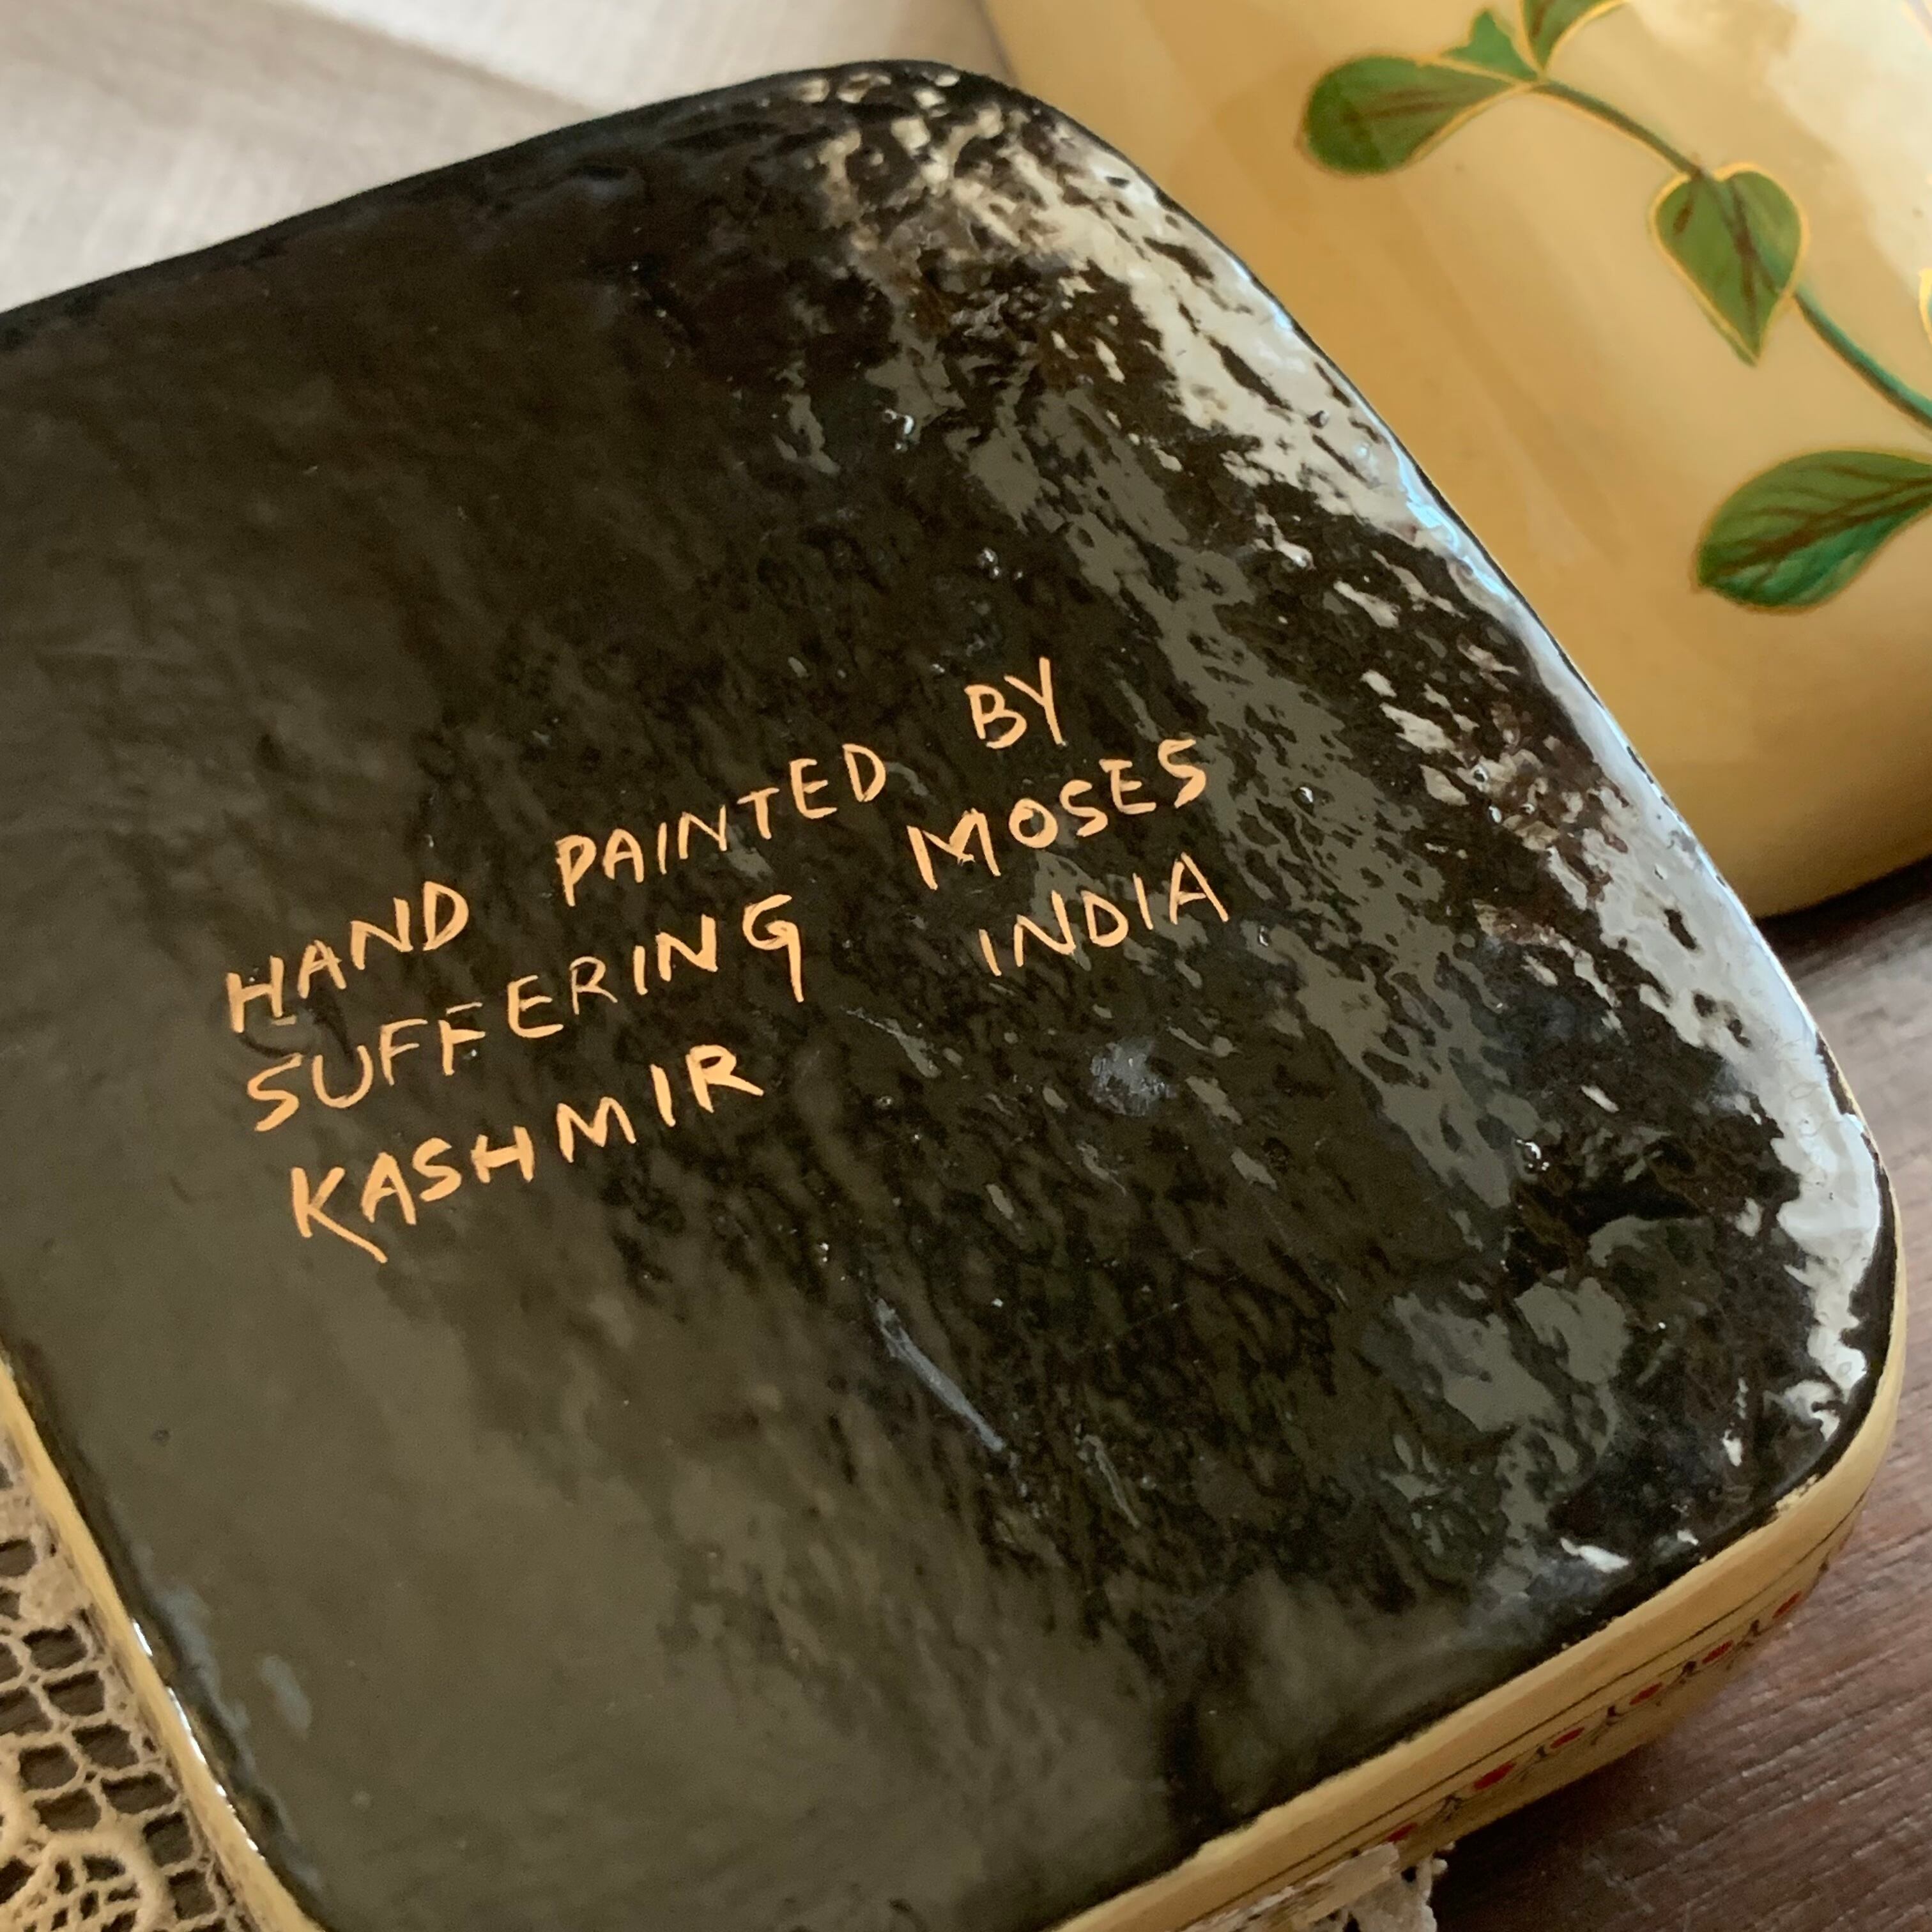 HAND PAINTED BY
SUFFERING MOSES
KASHMIR INDIA